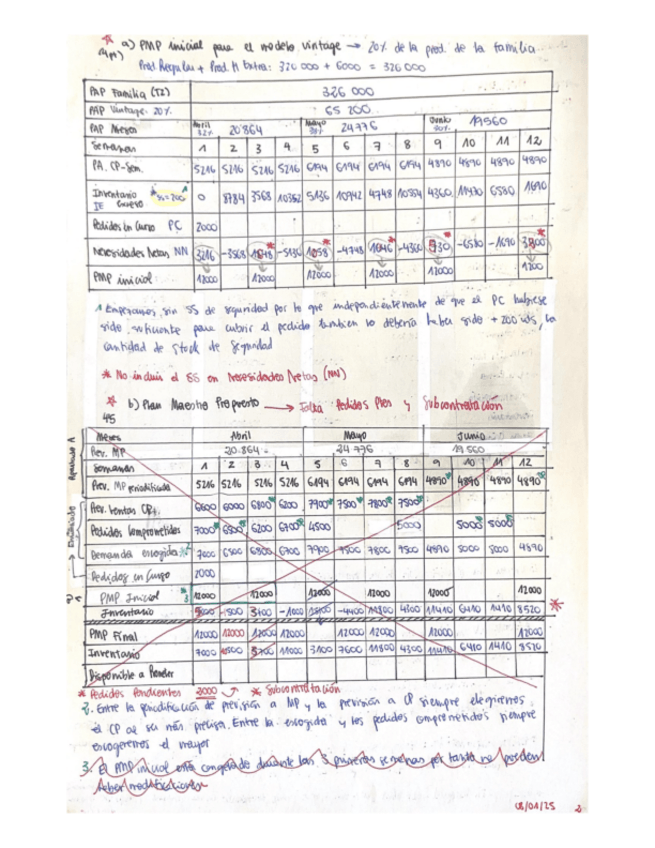 a) PMP inicial para el modelo vintage → 20% de la prod. de la familia
Prod Regular + Prod H Extra: 320 000 + 6000 = 326 000
PAP Familia (T2) 326 000
PAP Vintage. 20% 65 200
PAP Meses Abril 32% 20 864 Mayo 38% 24 776 Junio 30% 19560
Semanas 1 2 3 4 5 6 7 8 9 10 11 12
PA. CP-Sem. 5216 5216 5216 5216 6194 6194 6194 6194 4890 4890 4890 4890
Inventario SS=200 0 8784 3568 10352 5136 10942 4748 10554 4360 11470 6580 1690
Pedidos en Curso PC 2000
Necesidades Netas NN 3216 -3568 -5136 1058 -4748 -4360 -6580 -1690
PMP inicial 12000 12000 12000 12000 12000 1200
Empezamos sin SS de seguridad por lo que independientemente de que el PC hubiese
sido suficiente para cubrir el pedido tambien lo debería haber sido + 200 uds, la
cantidad de Stock de Seguridad
* No incluir el SS en Necesidades Netas (NN)
* b) Plan Maestro Propuesto → Falta Pedidos Ptes y Subcontratación
45
Meses Abril Mayo Junio
Rev. MP 20.864 24 776 19 560
Semanas 1 2 3 4 5 6 7 8 9 10 11 12
Rev. MP periodificada 5216 5216 5216 5216 6194 6194 6194 6194 4890 4890 4890 4890
Prev. Ventas CP 6600 6000 6800 6200 7900 7500 7800 7500
Pedidos Comprometidos 7000 6500 6200 6700 4500 5000 5000 5000
Demanda escogida *2 7000 6500 6800 6700 7900 7500 7800 7500 4890 5000 5000 4890
Pedidos en Curso 2000
PMP Inicial 3 12000 12000 12000 12000 12000 12000
Inventario 500 -1000 -4400 4300 11410 6410 1410 8520
PMP Final 12000 12000 12000 12000 12000 12000 12000 12000
Inventario 7000 11000 3100 7600 11800 4300 11410 6410 1410 8520
Disponible a Prometer
* Pedidos Pendientes 2000 * Subcontratación
2. Entre la periodificación de previsión a MP y la previsión a CP siempre elegiremos
el CP al ser más precisa. Entre la escogida y los pedidos comprometidos siempre
escogeremos el mayor
3. El PMP inicial está congelado durante las 3 primeras semanas por tanto no pueden
haber modificaciones
08/01/25
2